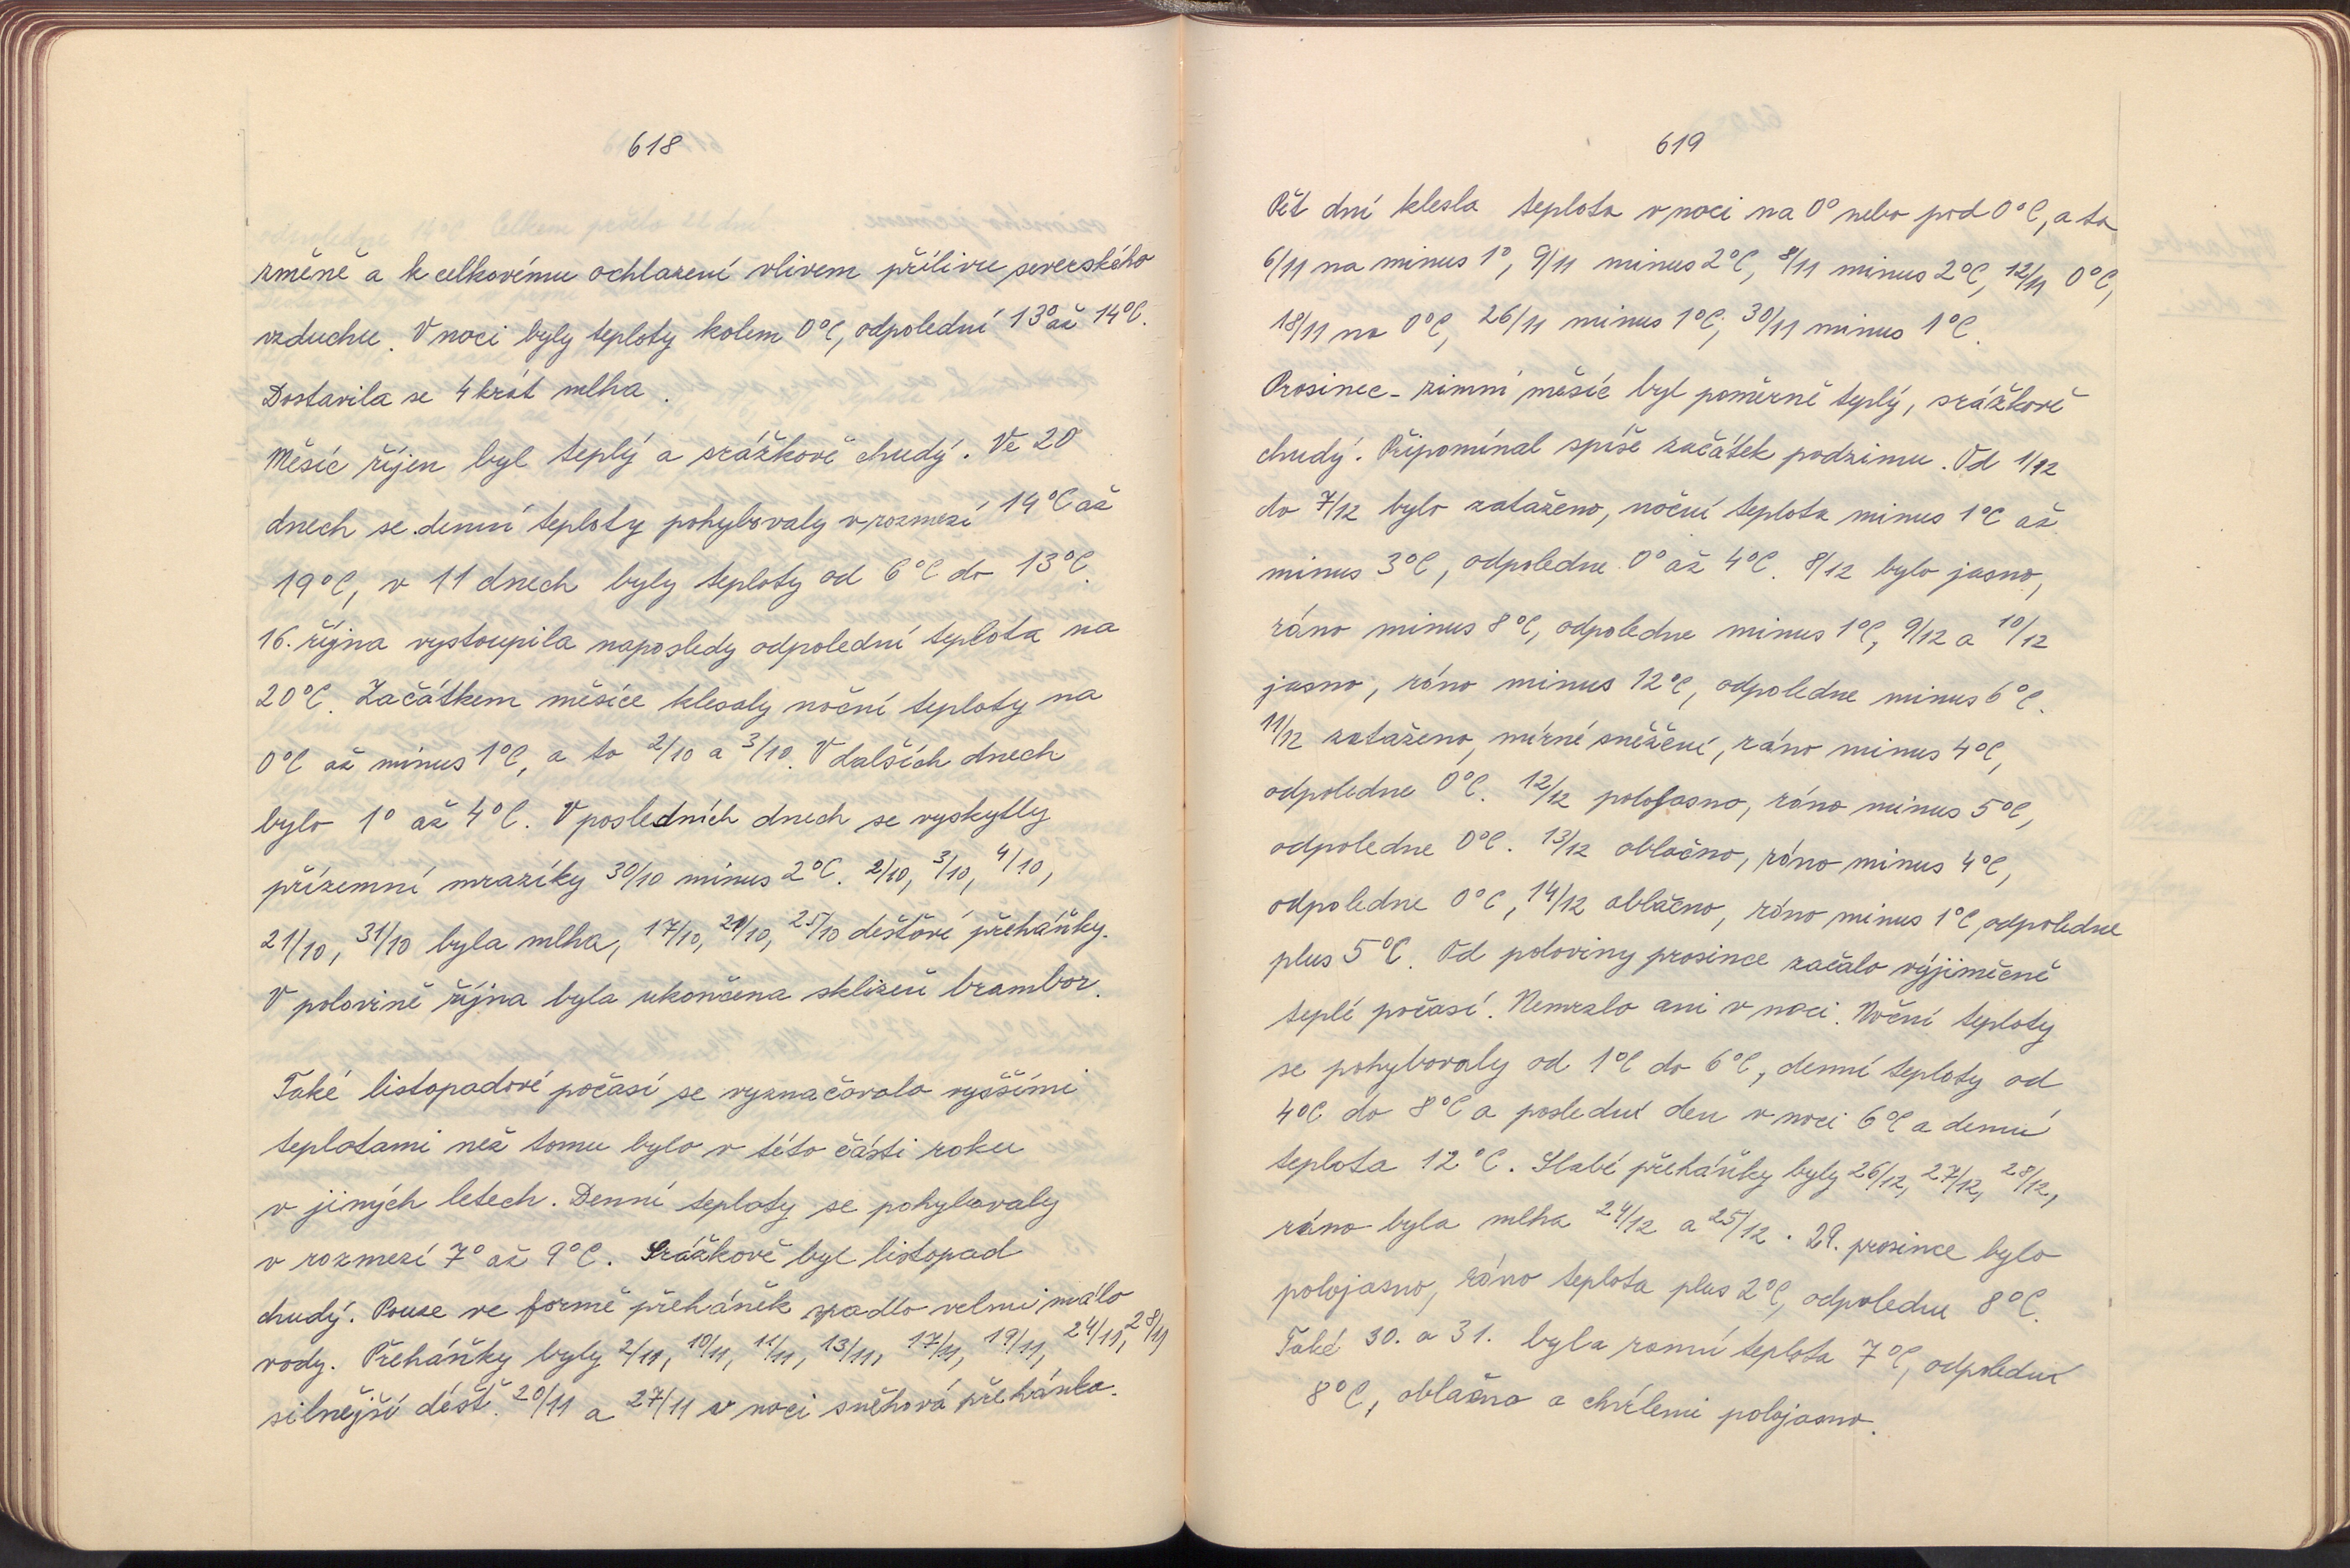 618
změně a k celkovému ochlazení vlivem přílivu severského
vzduchu. V noci byly teploty kolem 0°C, odpolední 13° až 14°C.
Dostavila se 4 krát mlha.
Měsíc říjen byl teplý a srážkově chudý. Ve 20
dnech se denní teploty pohybovaly v rozmezí 14°C až
19°C, v 11 dnech byly teploty od 6°C do 13°C.
16. října vystoupila naposledy odpolední teplota na
20°C. Začátkem měsíce klesaly noční teploty na
0°C až minus 1°C, a to 2/10 a 3/10. V dalších dnech
bylo 1° až 4°C. V posledních dnech se vyskytly
přízemní mrazíky 30/10 minus 2°C. 2/10, 3/10, 4/10,
21/10, 31/10 byla mlha, 17/10, 21/10, 25/10 dešťové přeháňky.
V polovině října byla ukončena sklizeň brambor.
Také listopadové počasí se vyznačovalo vyššími
teplotami než tomu bylo v této části roku
v jiných letech. Denní teploty se pohybovaly
v rozmezí 7° až 9°C. Srážkově byl listopad
chudý. Pouze ve formě přeháněk spadlo velmi málo
vody. Přeháňky byly 2/11, 10/11, 11/11, 13/11, 17/11, 19/11, 24/11, 28/11
silnější déšť. 20/11 a 27/11 v noci sněhová přehánka.
619
Pět dní klesla teplota v noci na 0° nebo pod 0°C, a to
6/11 na minus 1°, 9/11 minus 2°C, 8/11 minus 2°C, 12/11 0°C,
18/11 na 0°C, 26/11 minus 1°C, 30/11 minus 1°C.
Prosinec - zimní měsíc byl poměrně teplý, srážkově
chudý. Připomínal spíše začátek podzimu. Od 1/12
do 7/12 bylo zataženo, noční teplota minus 1°C až
minus 3°C, odpoledne 0° až 4°C. 8/12 bylo jasno,
ráno minus 8°C, odpoledne minus 1°C, 9/12 a 10/12
jasno, ráno minus 12°C, odpoledne minus 6°C.
11/12 zataženo, mírné sněžení, ráno minus 4°C,
odpoledne 0°C. 12/12 polojasno, ráno minus 5°C,
odpoledne 0°C. 13/12 oblačno, ráno minus 4°C,
odpoledne 0°C, 14/12 oblačno, ráno minus 1°C, odpoledne
plus 5°C. Od poloviny prosince začalo výjimečně
teplé počasí. Nemrzlo ani v noci. Noční teploty
se pohybovaly od 1°C do 6°C, denní teploty od
4°C do 8°C a poslední den v noci 6°C a denní
teplota 12°C. Slabé přeháňky byly 26/12, 27/12, 28/12,
ráno byla mlha 24/12 a 25/12. 29. prosince bylo
polojasno, ráno teplota plus 2°C, odpoledne 8°C.
Také 30. a 31. byla ranní teplota 7°C, odpolední
8°C, oblačno a chvílemi polojasno.